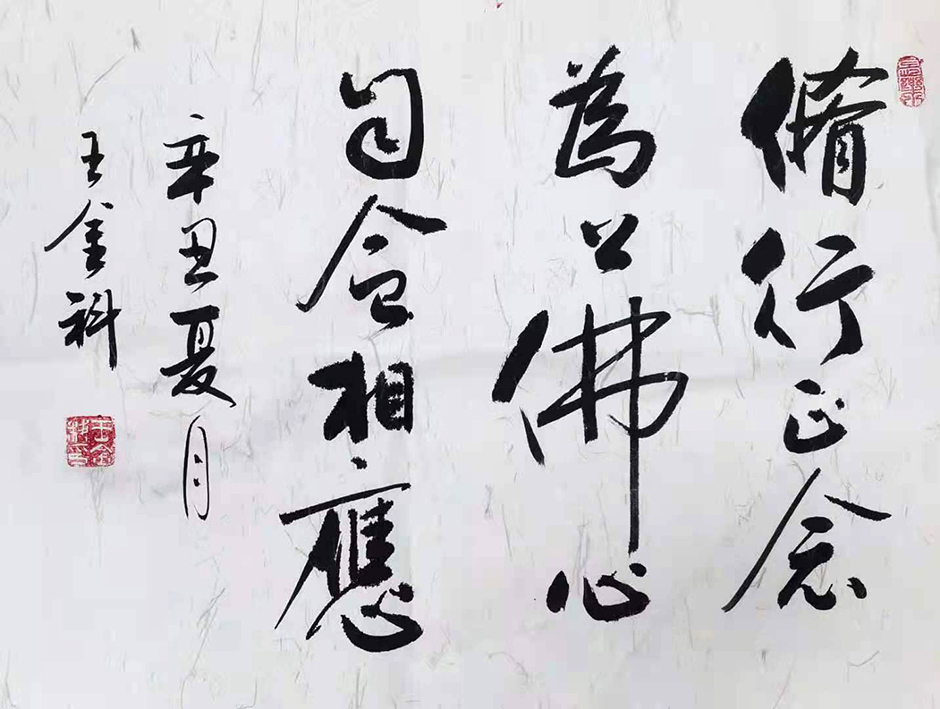 脩行正念
為公佛心
自念相應
辛丑夏月
王金科